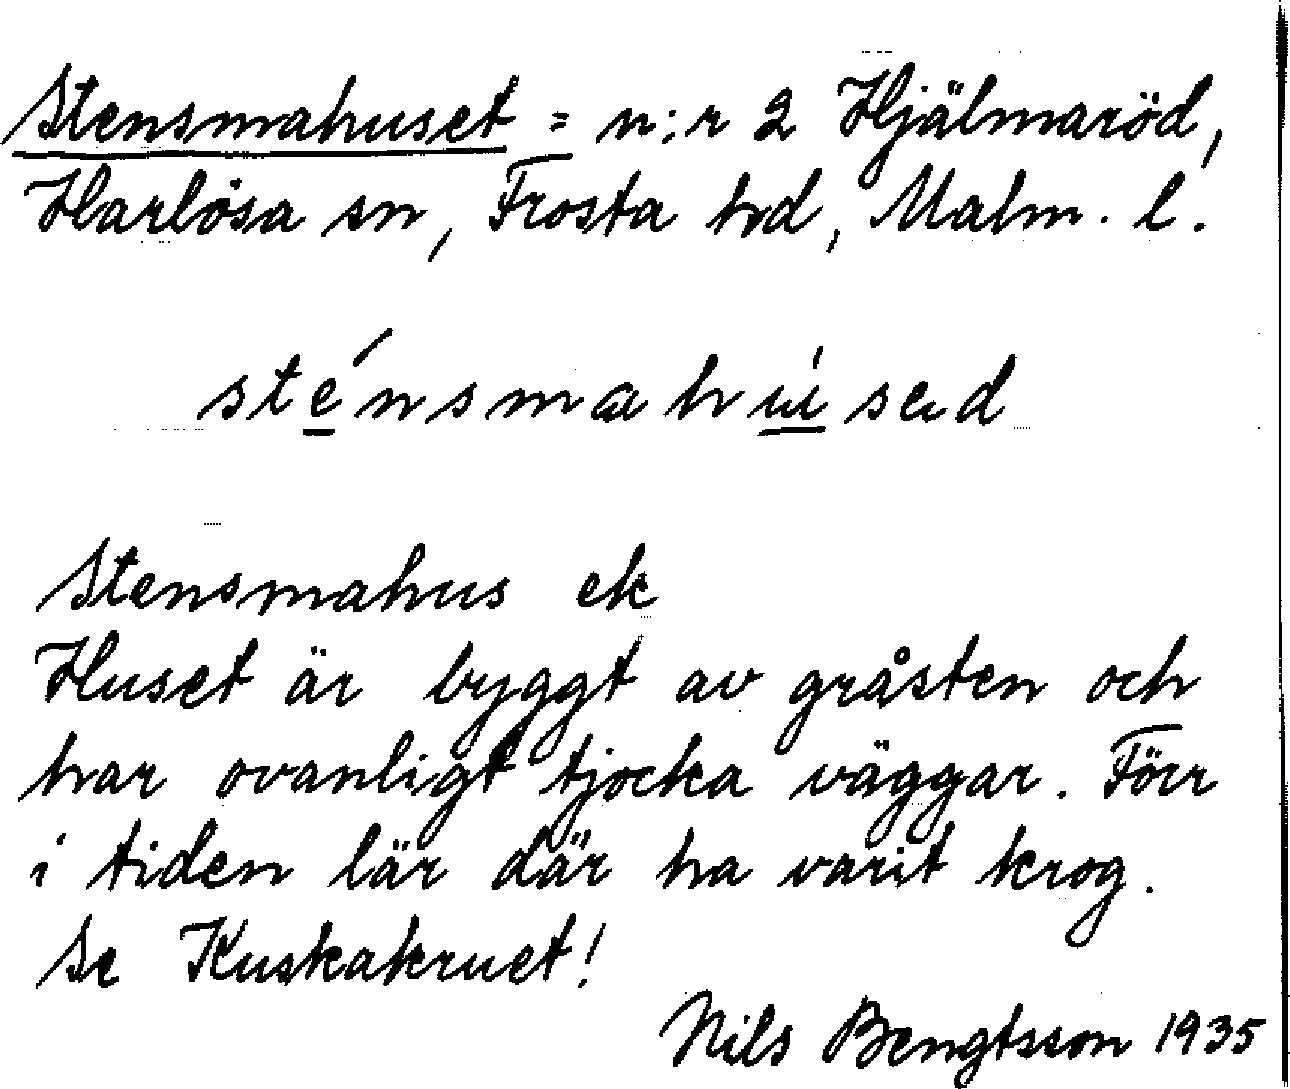 Stensmahuset = n:r 2 Hjälmaröd,
Harlösa sn, Frosta hd, Malm. l.
sténsmahuused
Stensmahus ek
Huset är byggt av gråsten och
har ovanligt tjocka väggar. Förr
i tiden lär där ha varit krog.
Se Kuskakruet!
Nils Bengtsson 1935